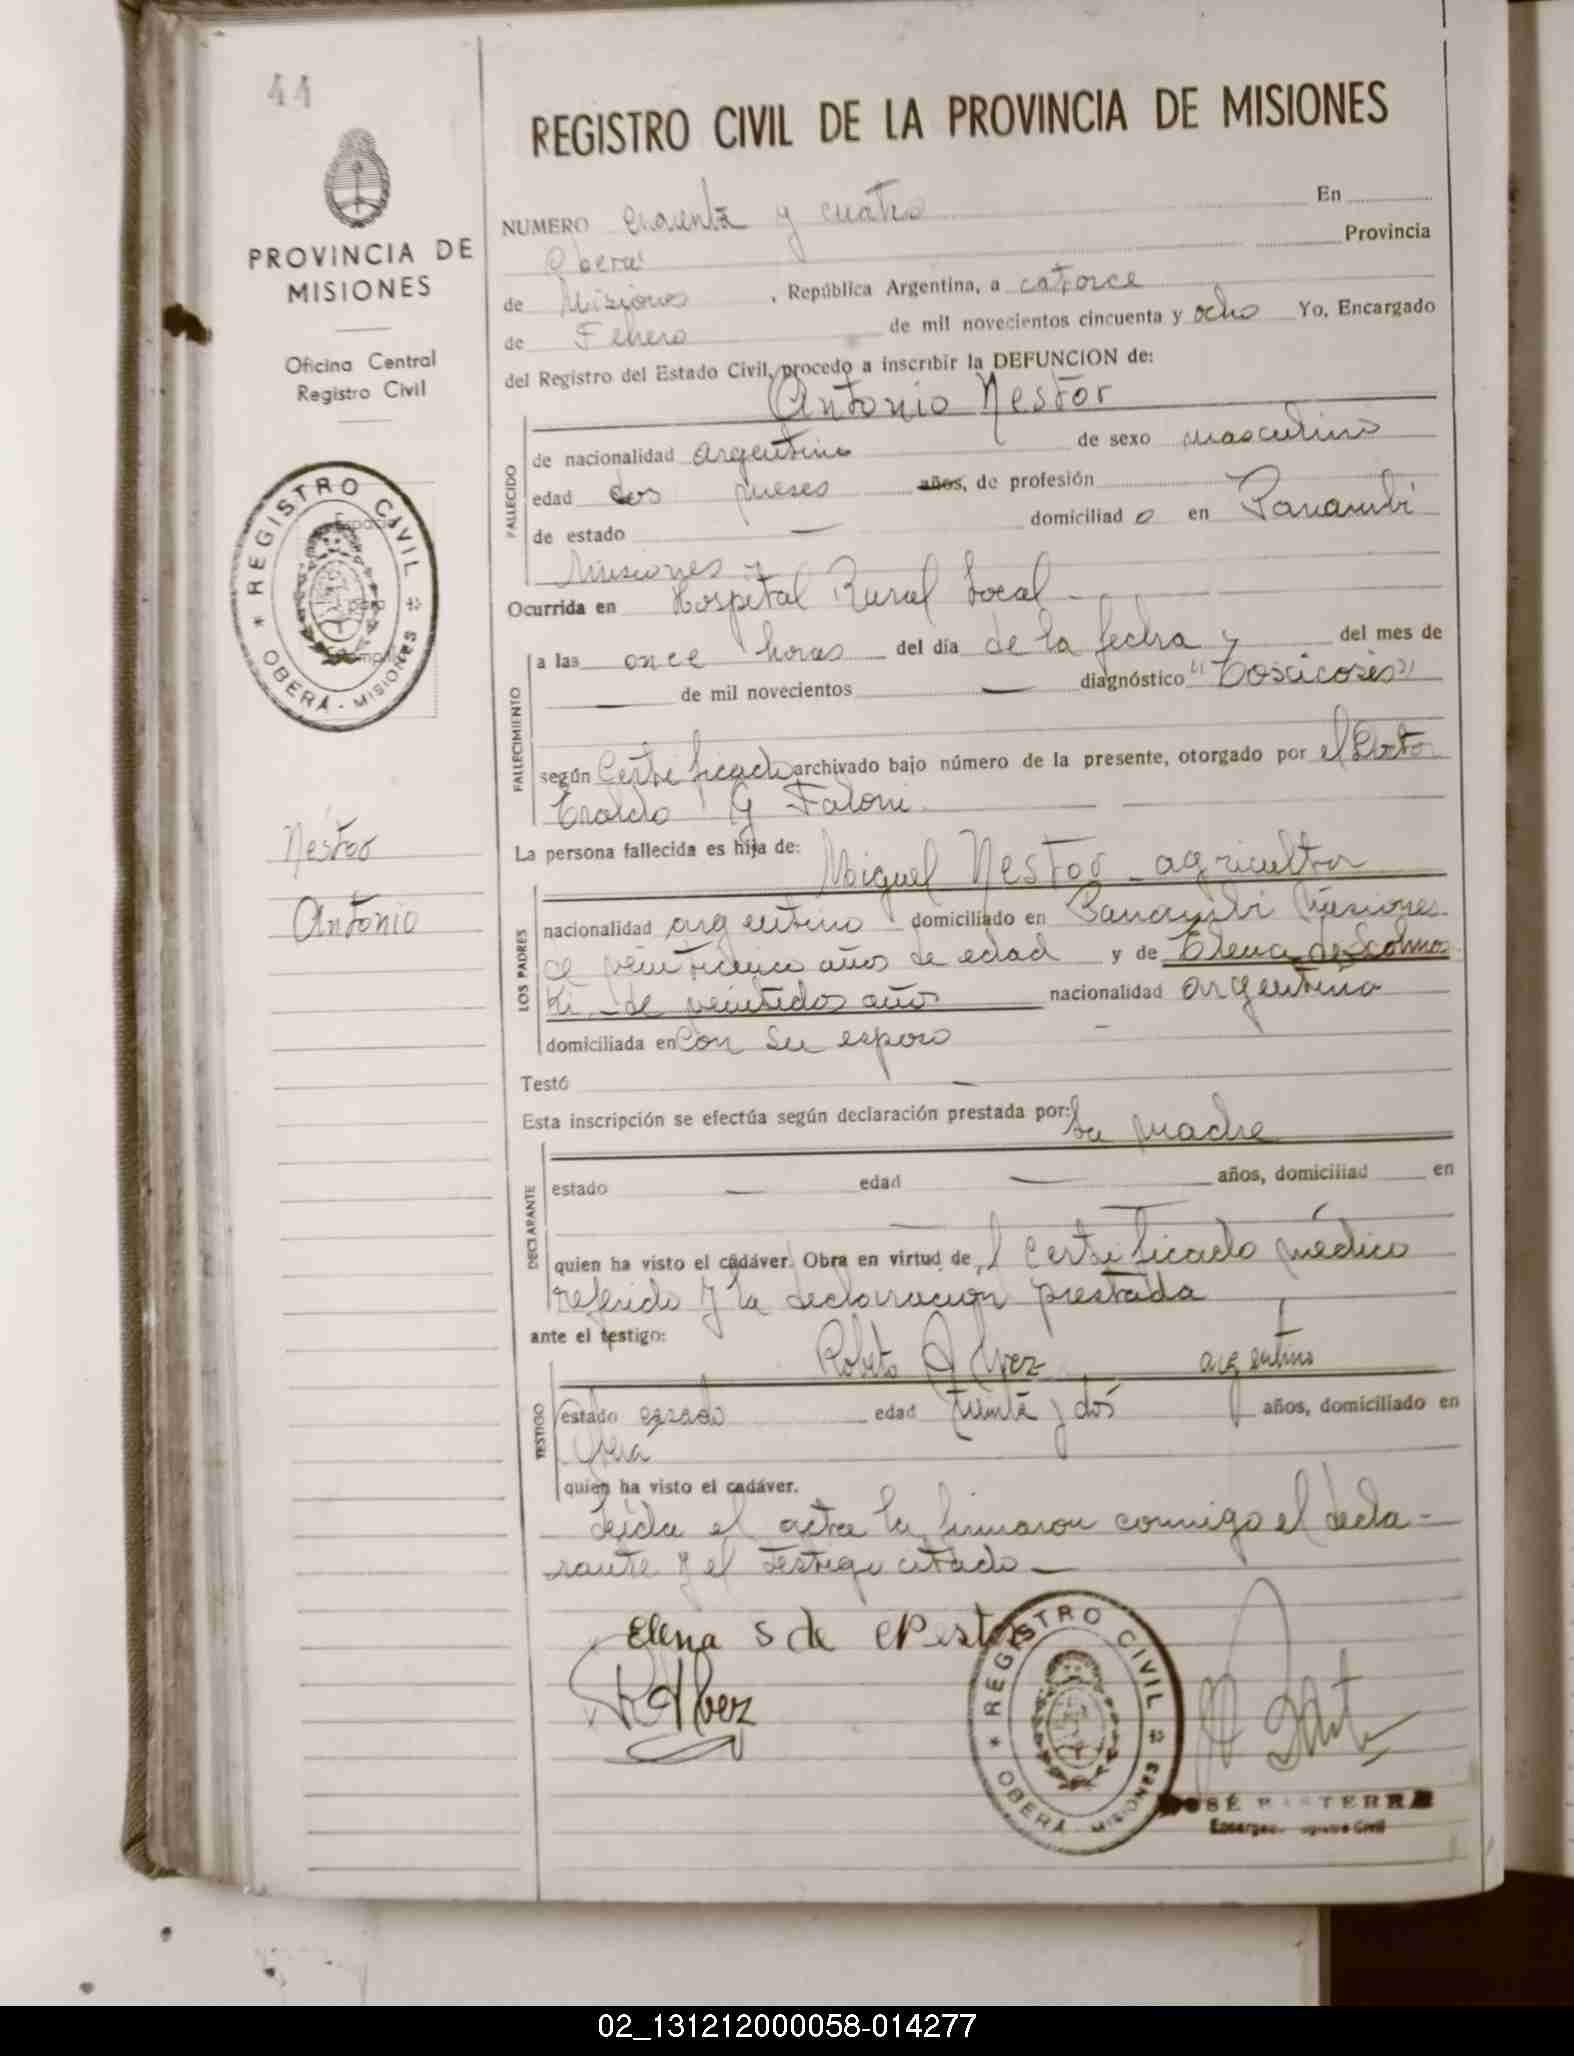 44
REGISTRO CIVIL DE LA PROVINCIA DE MISIONES
PROVINCIA DE
MISIONES
Oficina Central
Registro Civil
REGISTRO CIVIL
OBERÁ - MISIONES
Nestor
Antonio
NUMERO cuarenta y cuatro En
Oberá Provincia
de Misiones , República Argentina, a catorce
de Fenero de mil novecientos cincuenta y ocho Yo, Encargado
del Registro del Estado Civil, procedo a inscribir la DEFUNCION de:
Antonio Nestor
FALLECIDO
de nacionalidad argentino de sexo masculino
edad dos meses años, de profesión
de estado — domiciliad o en Panambí
Misiones
Ocurrida en Hospital Rural Local
FALLECIMIENTO
a las once horas del día de la fecha y del mes de
— de mil novecientos — diagnóstico "Toxicosis"
según Certificado archivado bajo número de la presente, otorgado por el Doctor
G Faloni
La persona fallecida es hija de: Miguel Nestor - agricultor
LOS PADRES
nacionalidad argentino domiciliado en Panambi Misiones
de años de edad y de Elena de Scolmos
ki - de veintidos años nacionalidad argentina
domiciliada en Con su esposo
Testó —
Esta inscripción se efectúa según declaración prestada por: Su madre
DECLARANTE
estado — edad — años, domiciliad en
quien ha visto el cadáver. Obra en virtud de l Certificado médico
referido y la declaracion prestada
ante el testigo: Roberto Alvez argentino
TESTIGO
estado casado edad treinta y dos años, domiciliado en
Obera
quien ha visto el cadáver.
Leida el acta la firmaron conmigo el decla-
rante y el testigo citado —
Elena S de Nestor
R Alvez
REGISTRO CIVIL
OBERÁ - MISIONES
JOSÉ BASTERRA
Encargado Registro Civil
02_131212000058-014277